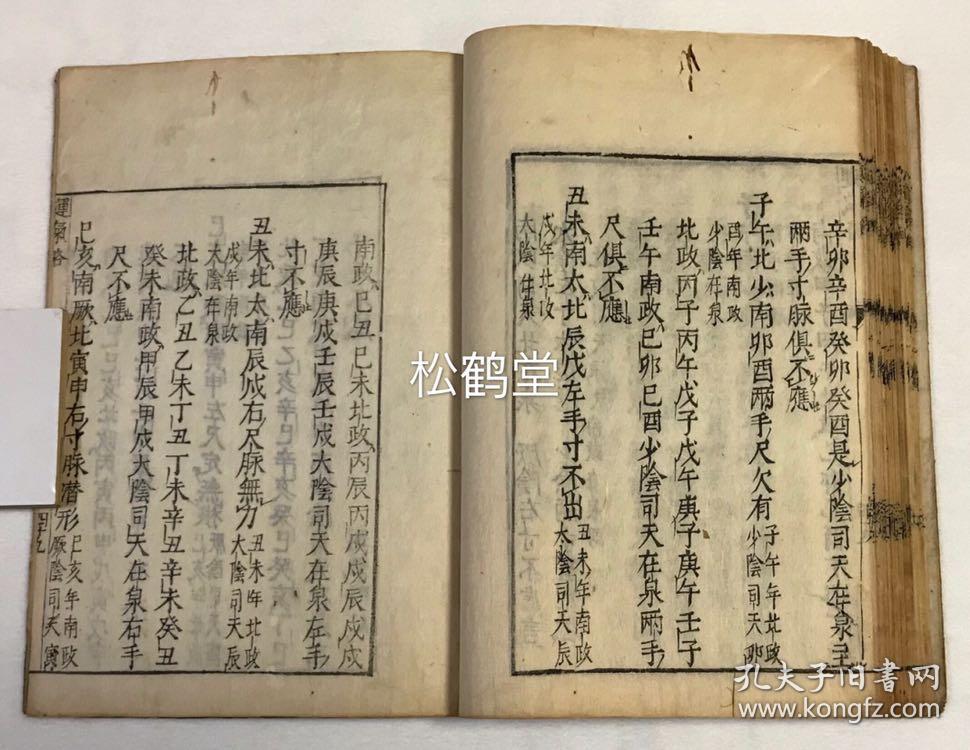 辛卯辛酉癸卯癸酉是少陰司天在泉主
兩手寸脉俱不應
子午北少南卯酉兩手尺欠有 子午年北政
少陰司天卯
酉年南政
少陰在泉
北政丙子丙午戊子戊午庚子庚午壬子
壬午南政己卯己酉少陰司天在泉兩手
尺俱不應
丑未南太北辰戌左手寸不出 丑未年南政
太陰司天辰
戌年北政
太陰在泉
南政己丑己未北政丙辰丙戌戊辰戊戌
庚辰庚戌壬辰壬戌大陰司天在泉左手
寸不應
丑未北太南辰戌右尺脉無力 丑未年北政
太陰司天辰
戌年南政
大陰在泉
北政乙丑乙未丁丑丁未辛丑辛未癸丑
癸未南政甲辰甲戌大陰司天在泉右手
尺不應
巳亥南厥北寅申右寸脉潜形 巳亥年南政
厥陰司天寅
四十九
松鹤堂
孔夫子旧书网
www.kongfz.com